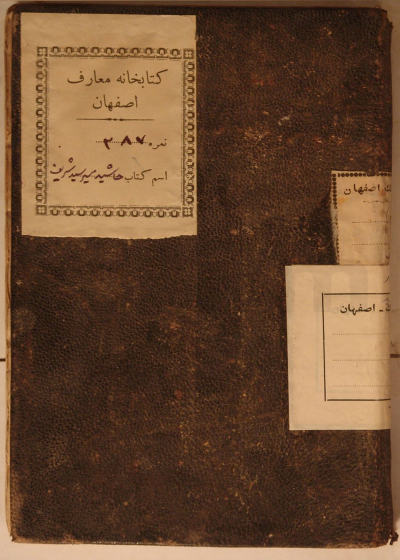 کتابخانه معارف
اصفهان
نمره ۲۸۷
اسم کتاب حاشیه میر سید شریف
اصفهان
ـ اصفهان